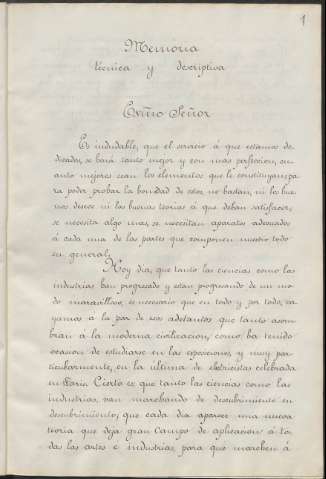 1
Memoria
técnica y descriptiva
Exmo Señor
Es indudable, que el servicio á que estamos de-
dicados, se hará tanto mejor y con mas perfeccion, cu-
anto mejores sean los elementos que le constituyan; pa
ra poder probar la bondad de estos no bastan, ni los bue
nos deseos ni las buenas teorias á que deban satisfacer,
se necesita algo mas, se necesitan aparatos adecuados
á cada una de las partes que componen nuestro todo
en general.
Hoy dia, que tanto las ciencias como las
industrias han progresado y estan progresando de un mo
do maravilloso, es necesario que en todo y por todo, va
yamos á la par de esos adelantos que tanto asom
bran á la moderna civilizacion, como ha tenido
ocasion de estudiarse en las exposiciones, y muy par
ticularmente, en la última de electricistas celebrada
en Paris. Cierto es que tanto las ciencias como las
industrias, van marchando de descubrimiento en
descubrimiento, que cada dia aparece una nueva
teoria que deja gran campo de aplicacion á to-
das las artes é industrias, para que marchen á